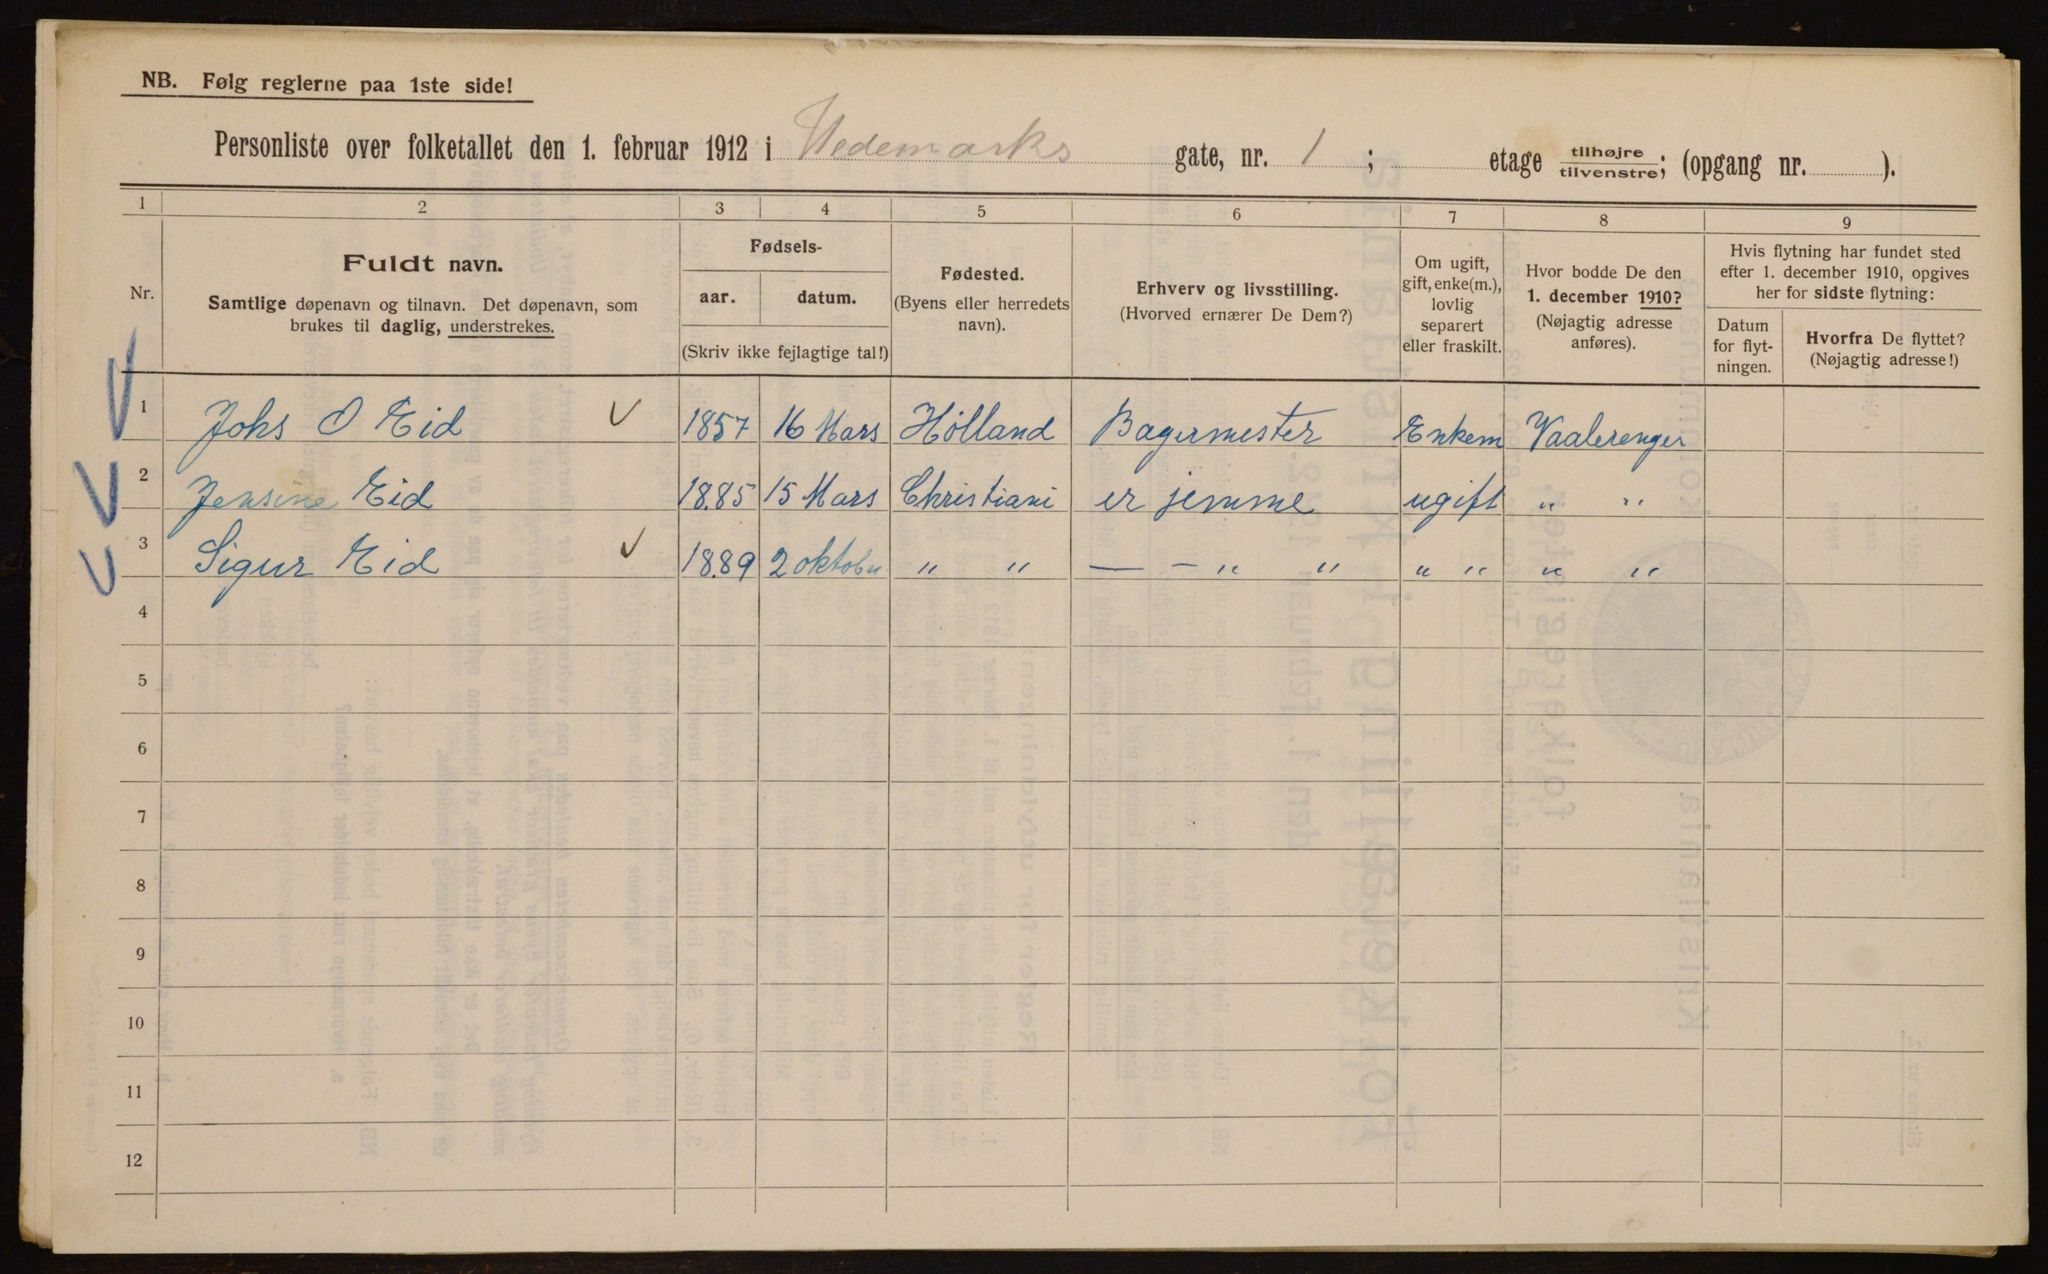 NB. Følg reglerne paa 1ste side!
Personliste over folketallet den 1. februar 1912 i Hedemarks gate, nr. 1 ; etage tilhøjre/tilvenstre; (opgang nr. ).
1 2 3 4 5 6 7 8 9
Nr.
Fuldt navn.
Samtlige døpenavn og tilnavn. Det døpenavn, som
brukes til daglig, understrekes.
Fødsels-
aar. datum.
(Skriv ikke fejlagtige tal!)
Fødested.
(Byens eller herredets
navn).
Erhverv og livsstilling.
(Hvorved ernærer De Dem?)
Om ugift,
gift, enke(m.),
lovlig
separert
eller fraskilt.
Hvor bodde De den
1. december 1910?
(Nøjagtig adresse
anføres).
Hvis flytning har fundet sted
efter 1. december 1910, opgives
her for sidste flytning:
Datum
for flyt-
ningen.
Hvorfra De flyttet?
(Nøjagtig adresse!)
1 Johs O Eid 1857 16 Mars Hölland Bagermester Enkem Vaalerengen
2 Jensine Eid 1885 15 Mars Christiani er jemme ugift " "
3 Sigur Eid 1889 2 oktober " " — - " " " " " "
4
5
6
7
8
9
10
11
12